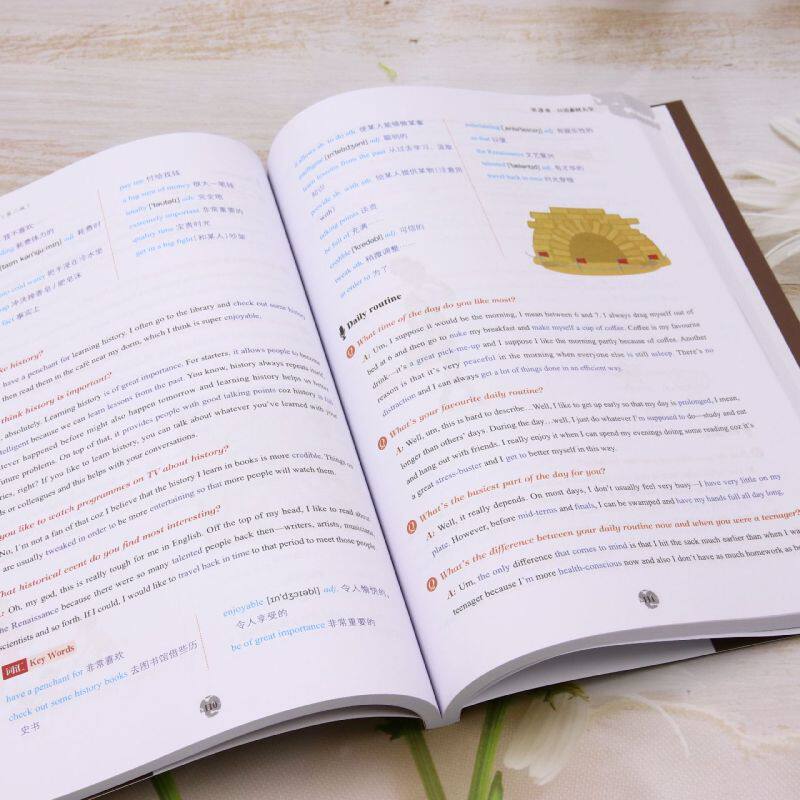 第二版
pay tax 付给我钱
a big sum of money 很大一笔钱
totally [ˈtəʊtəli] 完全地
extremely important 非常重要的
quality time 宝贵时光
get in a big fight（和某人）吵架
我不喜欢
耗费体力的
adj. 耗费时
cold water 把手浸在冷水里
冲洗掉香皂/肥皂沫
fact 事实上
ke history?
have a penchant for learning history. I often go to the library and check out some history
then read them in the café near my dorm, which I think is super enjoyable.
think history is important?
absolutely. Learning history is of great importance. For starters, it allows people to become
ntelligent because we can learn lessons from the past. You know, history always repeats itself
tever happened before might also happen tomorrow and learning history helps us better
future problems. On top of that, it provides people with good talking points coz history is full
ries, right? If you like to learn history, you can talk about whatever you've learned with your
ds or colleagues and this helps with your conversations.
you like to watch programmes on TV about history?
No, I'm not a fan of that coz I believe that the history I learn in books is more credible. Things on
are usually tweaked in order to be more entertaining so that more people will watch them.
hat historical event do you find most interesting?
Oh, my god, this is really tough for me in English. Off the top of my head, I like to read about
he Renaissance because there were so many talented people back then—writers, artists, musicians,
scientists and so forth. If I could, I would like to travel back in time to that period to meet those people.
词汇 Key Words
have a penchant for 非常喜欢
check out some history books 去图书馆借些历
史书
enjoyable [ɪnˈdʒɔɪəbl] adj. 令人愉快的，
令人享受的
be of great importance 非常重要的
110
allows sb. to do sth. 使某人能够做某事
intelligent [ɪnˈtelɪdʒənt] adj. 聪明的
learn lessons from the past 从过去学习、汲取
知识
provide sb. with sth. 给某人提供某物（注意用
with）
talking points 谈资
be full of 充满
credible [ˈkredəbl] adj. 可信的
tweak sth. 稍微调整
in order to 为了
entertaining adj. 有娱乐性的
so that 以便
the Renaissance 文艺复兴
talented [ˈtæləntɪd] adj. 有才华的
travel back in time 时光穿梭
Daily routine
Q What time of the day do you like most?
A: Um, I suppose it would be the morning, I mean between 6 and 7. I always drag myself out of
bed at 6 and then go to make my breakfast and make myself a cup of coffee. Coffee is my favourite
drink—it's a great pick-me-up and I suppose I like the morning partly because of coffee. Another
reason is that it's very peaceful in the morning when everyone else is still asleep. There's no
distraction and I can always get a lot of things done in an efficient way.
Q What's your favourite daily routine?
A: Well, um, this is hard to describe...Well, I like to get up early so that my day is prolonged, I mean,
longer than others' days. During the day...well, I just do whatever I'm supposed to do—study and eat
and hang out with friends. I really enjoy it when I can spend my evenings doing some reading coz it's
a great stress-buster and I get to better myself in this way.
Q What's the busiest part of the day for you?
A: Well, it really depends. On most days, I don't usually feel very busy—I have very little on my
plate. However, before mid-terms and finals, I can be swamped and have my hands full all day long.
Q What's the difference between your daily routine now and when you were a teenager?
A: Um, the only difference that comes to mind is that I hit the sack much earlier than when I wa
teenager because I'm more health-conscious now and also I don't have as much homework as be
111